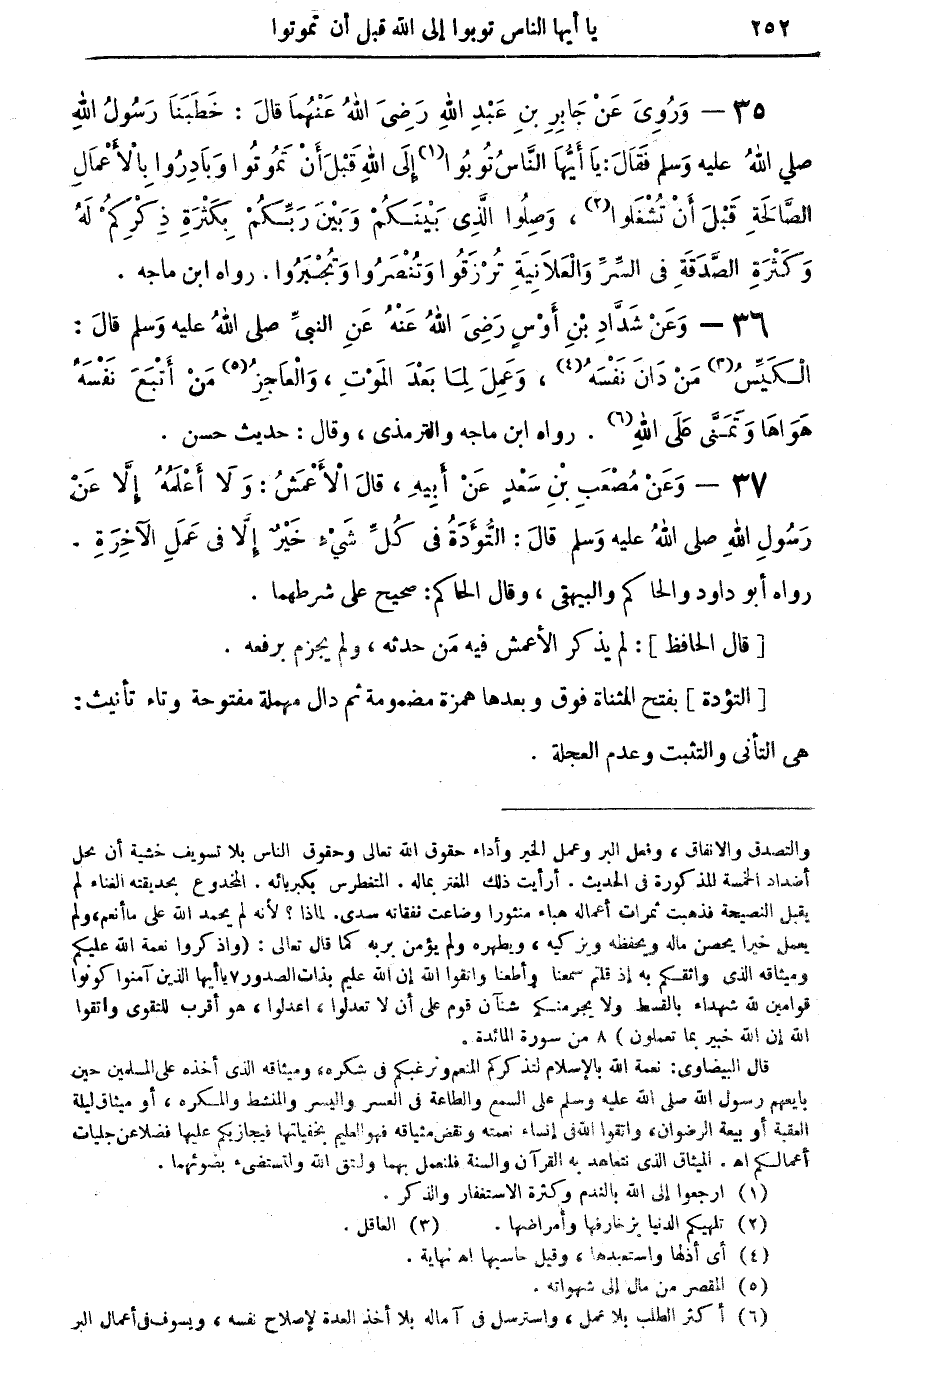 ٢٥٢ يا أيها الناس توبوا إلى الله قبل أن تموتوا
٣٥ — وَرُوِىَ عَنْ جَابِرِ بنِ عَبْدِ اللهِ رَضِىَ اللهُ عَنْهُمَا قَالَ : خَطَبَنَا رَسُولُ اللهِ
صلى اللهُ عليه وَسلم فَقَالَ: يَا أَيُّهَا النَّاسُ تُوبُوا(١) إِلَى اللهِ قَبْلَ أَنْ تَمُوتُوا وَبَادِرُوا بِالْأَعْمَالِ
الصَّالِحَةِ قَبْلَ أَنْ تُشْغَلُوا(٢) ، وَصِلُوا الَّذِى بَيْنَكُمْ وَبَيْنَ رَبِّكُمْ بِكَثْرَةِ ذِكْرِكُمْ لَهُ
وَكَثْرَةِ الصَّدَقَةِ فى السِّرِّ وَالْعَلَانِيَةِ تُرْزَقُوا وَتُنْصَرُوا وَتُجْبَرُوا . رواه ابن ماجه .
٣٦ — وَعَنْ شَدَّادِ بْنِ أَوْسٍ رَضِىَ اللهُ عَنْهُ عَنِ النبىِّ صلى اللهُ عليه وَسلم قالَ :
الْكَيِّسُ(٣) مَنْ دَانَ نَفْسَهُ(٤) ، وَعَمِلَ لِمَا بَعْدَ المَوْتِ ، وَالْعَاجِزُ(٥) مَنْ أَتْبَعَ نَفْسَهُ
هَوَاهَا وَتَمَنَّى عَلَى اللهِ(٦) . رواه ابن ماجه والترمذى ، وقال : حديث حسن .
٣٧ — وَعَنْ مُصْعَبِ بْنِ سَعْدٍ عَنْ أَبِيهِ ، قالَ الْأَعْمَشُ : وَلَا أَعْلَمُهُ إِلَّا عَنْ
رَسُولِ اللهِ صلى اللهُ عليه وَسلم قالَ : التُّؤَدَةُ فى كُلِّ شَىْءٍ خَيْرٌ إِلَّا فى عَمَلِ الْآخِرَةِ .
رواه أبو داود والحاكم والبيهقى ، وقال الحاكم: صحيح على شرطهما .
[ قال الحافظ ] : لم يذكر الأعمش فيه مَن حدثه ، ولم يجزم برفعه .
[ التؤدة ] بفتح المثناة فوق وبعدها همزة مضمومة ثم دال مهملة مفتوحة وتاء تأنيث :
هى التأنى والتثبت وعدم العجلة .
والتصدق والانفاق ، وفعل البر وعمل الخير وأداء حقوق الله تعالى وحقوق الناس بلا تسويف خشية أن يحل
أضداد الخمسة المذكورة فى الحديث . أرأيت ذلك المغتر بماله . المتغطرس بكبريائه . المخدوع بحديقته الغناء لم
يقبل النصيحة فذهبت ثمرات أعماله هباء منثورا وضاعت نفقاته سدى. لماذا ؟ لأنه لم يحمد الله على ماأنعم، ولم
يعمل خيرا يحصن ماله ويحفظه ويزكيه ، ويطهره ولم يؤمن بربه كما قال تعالى : (واذكروا نعمة الله عليكم
وميثاقه الذى واثقكم به إذ قلتم سمعنا وأطعنا واتقوا الله إن الله عليم بذات الصدور ٧ ياأيها الذين آمنوا كونوا
قوامين لله شهداء بالقسط ولا يجرمنكم شنآن قوم على أن لا تعدلوا ، اعدلوا ، هو أقرب للتقوى واتقوا
الله إن الله خبير بما تعملون ) ٨ من سورة المائدة .
قال البيضاوى: نعمة الله بالإسلام لتذكركم المنعم وترغبكم فى شكره، وميثاقه الذى أخذه على المسلمين حين
بايعهم رسول الله صلى الله عليه وسلم على السمع والطاعة فى العسر واليسر والمنشط والمكره ، أو ميثاق ليلة
العقبة أو بيعة الرضوان، واتقوا الله فى إنساء نعمته ونقض ميثاقه فهو العليم بخفياتها فيجازيكم عليها فضلا عن جليات
أعمالكم اهـ . الميثاق الذى نتعاهد به القرآن والسنة فلنعمل بهما ولنتق الله ولنستضىء بضوئهما .
(١) ارجعوا إلى الله بالندم وكثرة الاستغفار والذكر .
(٢) تلهيكم الدنيا بزخارفها وأمراضها . (٣) العاقل .
(٤) أى أذلها واستعبدها ، وقيل حاسبها اهـ نهاية .
(٥) المقصر من مال إلى شهواته .
(٦) أكثر الطلب بلا عمل ، واسترسل فى آماله بلا أخذ العدة لإصلاح نفسه ، ويسوف فى أعمال البر